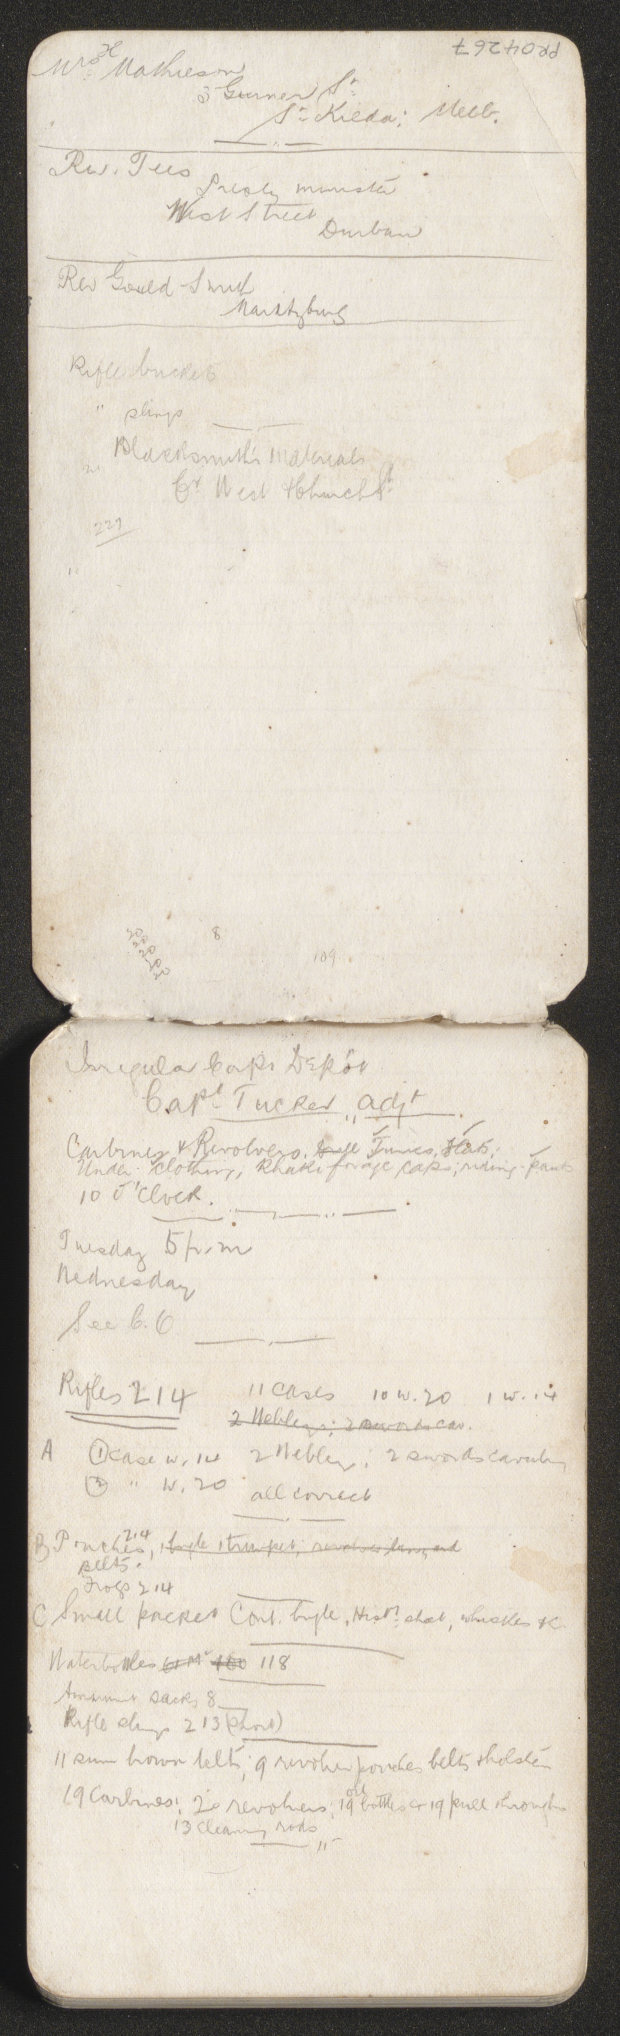 PR04267
Mrs Mathieson
3 Gurner St
St Kilda; Melb.
Rev. Tees
Presby minister
West Street
Durban
Rev Gould-Smith
Maritzburg
Rifle buckets
" slings
Blacksmith's Materials
Cr West & Church St
227
8
109
Irregular Corps Depôt
Capt Tucker, adjt
Carbines & Revolvers, Tunics, Hats,
Under clothing, Khaki forage caps; riding pants
10 O'Clock.
Tuesday 5 p.m
Wednesday
See C.O
Rifles 214 11 cases 10 w. 20 1 w. 14
2 Webleys; 2 swords cav.
A (1) case w. 14 2 Webley; 2 swords cavalry
(2) " w. 20 all correct
B Pouches, 214 bugle 1 trumpet,
Belts.
Frogs 214
C Small packet Cont. bugle, Hist. sheet, whistles &c.
Waterbottles 118
Ammunt sacks 8
Rifle slings 213 (short)
11 sam brown belts, 9 revolver pouches belts & holsters
19 Carbines; 20 revolvers; 19 oil bottles & 19 pull throughs
13 cleaning rods